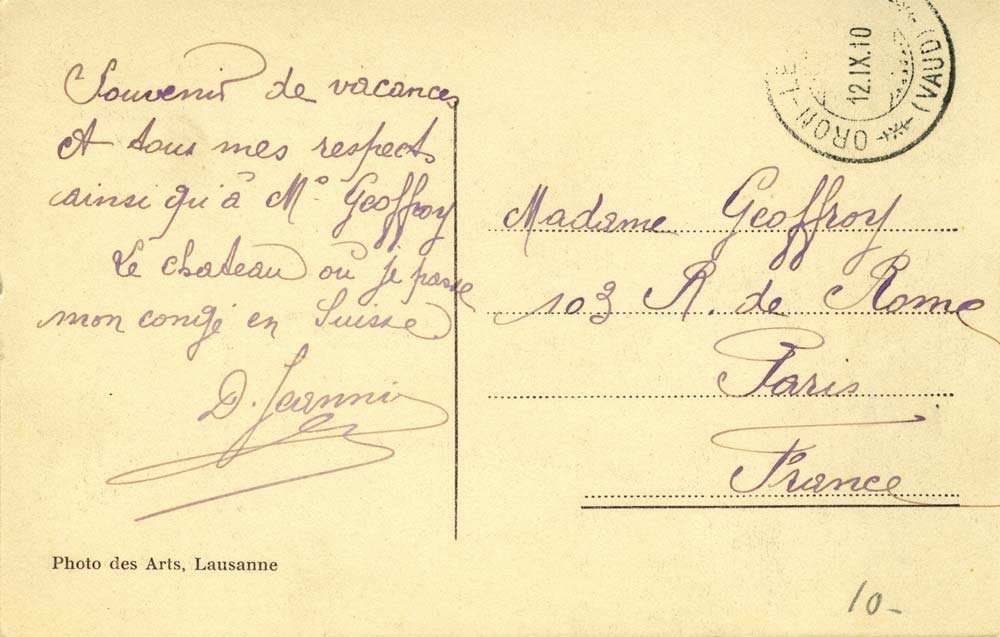 Souvenir de vacances
et tous mes respects
ainsi qu'à Mr Geoffroy
Le chateau où je passe
mon congé en Suisse
D. Jeannin
Photo des Arts, Lausanne
12.IX.10
ORON-LE
(VAUD)
Madame Geoffroy
103 R. de Rome
Paris
France
10-